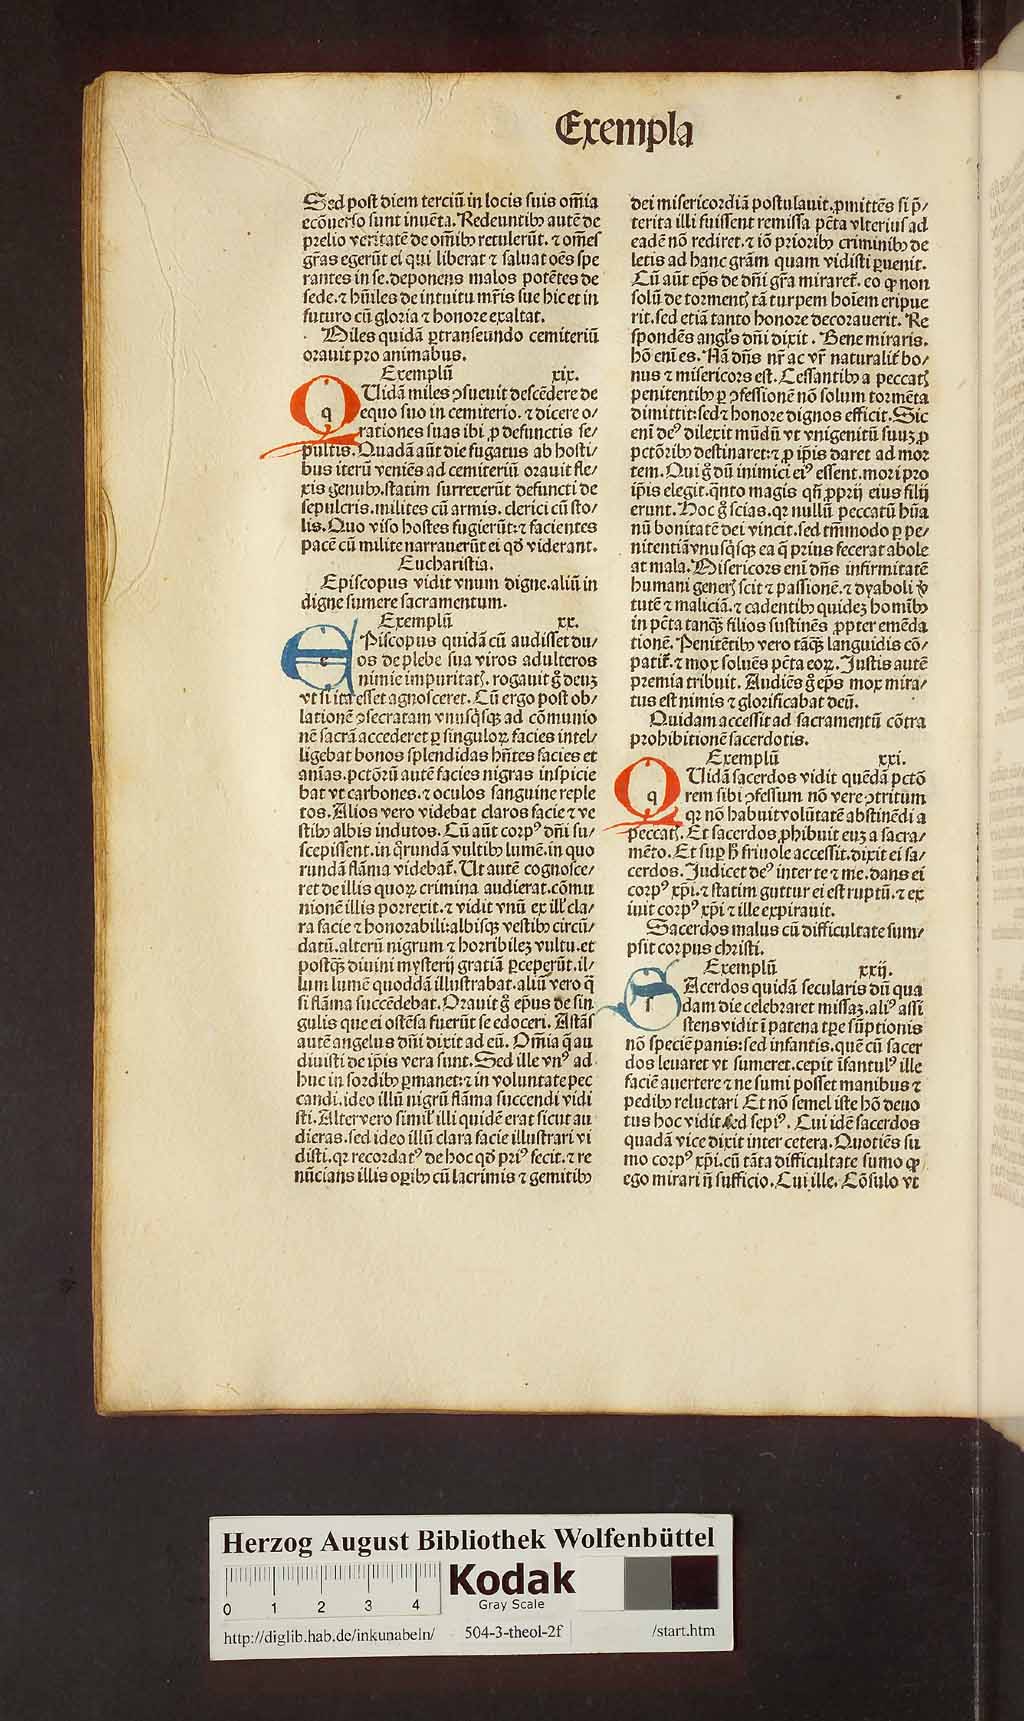 Exempla
Sed post diem terciū in locis suis om̄ia
ecōuerso sunt inuēta. Redeuntibꝰ autē de
prelio veritatē de om̄ibꝰ retulerūt. ⁊ om̄es
gr̄as egerūt ei qui liberat ⁊ saluat oēs spe
rantes in se. deponens malos potētes de
sede. ⁊ hūiles de intuitu mr̄is sue hic et in
futuro cū gloria ⁊ honore exaltat.
Miles quidā ꝑtranseundo cemiteriū
orauit pro animabus.
Exemplū xix.
QUidā miles ꝯsueuit descēdere de
equo suo in cemiterio. ⁊ dicere o/
rationes suas ibi ꝓ defunctis se/
pultis. Quadā aūt die fugatus ab hosti/
bus iterū veniēs ad cemiteriū orauit fle/
xis genubꝰ. statim surrexerūt defuncti de
sepulcris. milites cū armis. clerici cū sto/
lis. Quo viso hostes fugierūt: ⁊ facientes
pacē cū milite narrauerūt ei qd̓ viderant.
Eucharistia.
Episcopus vidit vnum digne. aliū in
digne sumere sacramentum.
Exemplū xx.
EPiscopus quidā cū audisset du/
os de plebe sua viros adulteros
nimie impuritatꝭ. rogauit g̊ deuꝫ
vt si ita esset agnosceret. Cū ergo post ob/
lationē ꝯsecratam vnusqͥsqꝫ ad cōmunio
nē sacrā accederet ꝑ singuloꝝ facies intel/
ligebat bonos splendidas hn̄tes facies et
anīas. pctōrū autē facies nigras inspicie
bat vt carbones. ⁊ oculos sanguine reple
tos. Alios vero videbat claros facie ⁊ ve
stibꝰ albis indutos. Cū aūt corpꝰ dn̄i su/
scepissent. in qͥrundā vultibꝰ lumē. in quo
rundā flāma videbat᷑. Ut autē cognosce/
ret de illis quoꝝ crimina audierat. cōmu
nionē illis porrexit. ⁊ vidit vnū ex ill̓ cla/
ra facie ⁊ honorabili: albisqꝫ vestibꝰ circū/
datū. alterū nigrum ⁊ horribileꝫ vultu. et
postqꝫ diuini mysterij gratiā ꝑceperūt. il/
lum lumē quoddā illustrabat. aliū vero q̄
si flāma succēdebat. Orauit g̊ ep̄us de sin
gulis que ei ostēsa fuerūt se edoceri. Astās
autē angelus dn̄i dixit ad eū. Om̄ia q̄ au
diuisti de ip̄is vera sunt. Sed ille vnꝰ ad
huc in sordibꝰ ꝑmanet: ⁊ in voluntate pec
candi. ideo illū nigrū flāma succendi vidi
sti. Alter vero simil̓ illi quidē erat sicut au
dieras. sed ideo illū clara facie illustrari vi
disti. qꝛ recordatꝰ de hoc qd̓ priꝰ fecit. ⁊ re
nūcians illis oꝑibꝰ cū lacrimis ⁊ gemitibꝰ
dei misericordiā postulauit. ꝓmittēs si p̄/
terita illi fuissent remissa pc̄ta vlterius ad
eadē nō rediret. ⁊ iō prioribꝰ criminibꝰ de
letis ad hanc gr̄am quam vidisti ꝑuenit.
Cū aūt ep̄s de dn̄i gr̄a miraret᷑. eo ꝙ non
solū de tormentꝭ tā turpem hoīem eripue
rit. sed etiā tanto honore decorauerit. Re
spondēs angl̓s dn̄i dixit. Bene miraris.
hō enī es. Nā dn̄s nr̄ ac vr̄ naturalit᷑ bo/
nus ⁊ misericors est. Cessantibꝰ a peccatꝭ
penitentibꝰ ꝑ ꝯfessionē nō solum tormēta
dimittit: sed ⁊ honore dignos efficit. Sic
enī deꝰ dilexit mūdū vt vnigenitū suuꝫ ꝓ
pctōribꝰ destinaret: ⁊ ꝓ ip̄is daret ad mor
tem. Qui g̊ dū inimici eiꝰ essent. mori pro
ip̄is elegit. qͣnto magis qn̄ ꝓprij eius filij
erunt. Hoc g̊ scias. qꝛ nullū peccatū hūa
nū bonitatē dei vincit. sed tm̄modo ꝑ pe/
nitentiā vnusqͥsqꝫ ea q̄ prius fecerat abole
at mala. Misericors enī dn̄s infirmitatē
humani generꝭ scit ⁊ passionē. ⁊ dyaboli v̓
tutē ⁊ maliciā. ⁊ cadentibꝰ quideꝫ homībꝰ
in pc̄ta tanqꝫ filios sustinēs ꝓpter emēda
tionē. Penitētibꝰ vero tāqꝫ languidis cō/
patit᷑. ⁊ mox soluēs pc̄ta eoꝝ. Justis autē
premia tribuit. Audiēs g̊ ep̄s mox mira/
tus est nimis ⁊ glorificabat deū.
Quidam accessit ad sacramentū cōtra
prohibitionē sacerdotis.
Exemplū xxi.
QUidā sacerdos vidit quēdā pctō
rem sibi ꝯfessum nō vere ꝯtritum
qꝛ nō habuit volūtatē abstinēdi a
peccatꝭ. Et sacerdos ꝓhibuit euꝫ a sacra/
mēto. Et suꝑ h̄ friuole accessit. dixit ei sa/
cerdos. Judicet deꝰ inter te ⁊ me. dans ei
corpꝰ xp̄i. ⁊ statim guttur ei est ruptū. ⁊ ex
iuit corpꝰ xp̄i ⁊ ille expirauit.
Sacerdos malus cū difficultate sum/
psit corpus christi.
Exemplū xxij.
SAcerdos quidā secularis dū qua
dam die celebraret missaꝫ. aliꝰ assi
stens vidit ī patena tp̄e sūptionis
nō speciē panis: sed infantis. quē cū sacer
dos leuaret vt sumeret. cepit īfantulꝰ ille
faciē auertere ⁊ ne sumi posset manibus ⁊
pedibꝰ reluctari Et nō semel iste hō deuo
tus hoc vidit sed sepiꝰ. Cui idē sacerdos
quadā vice dixit inter cetera. Quotiēs su
mo corpꝰ xp̄i. cū tāta difficultate sumo ꝙ
ego mirari nō sufficio. Cui ille. Cōsulo vt
Herzog August Bibliothek Wolfenbüttel
0 1 2 3 4
Kodak
Gray Scale
http://diglib.hab.de/inkunabeln/ 504-3-theol-2f /start.htm